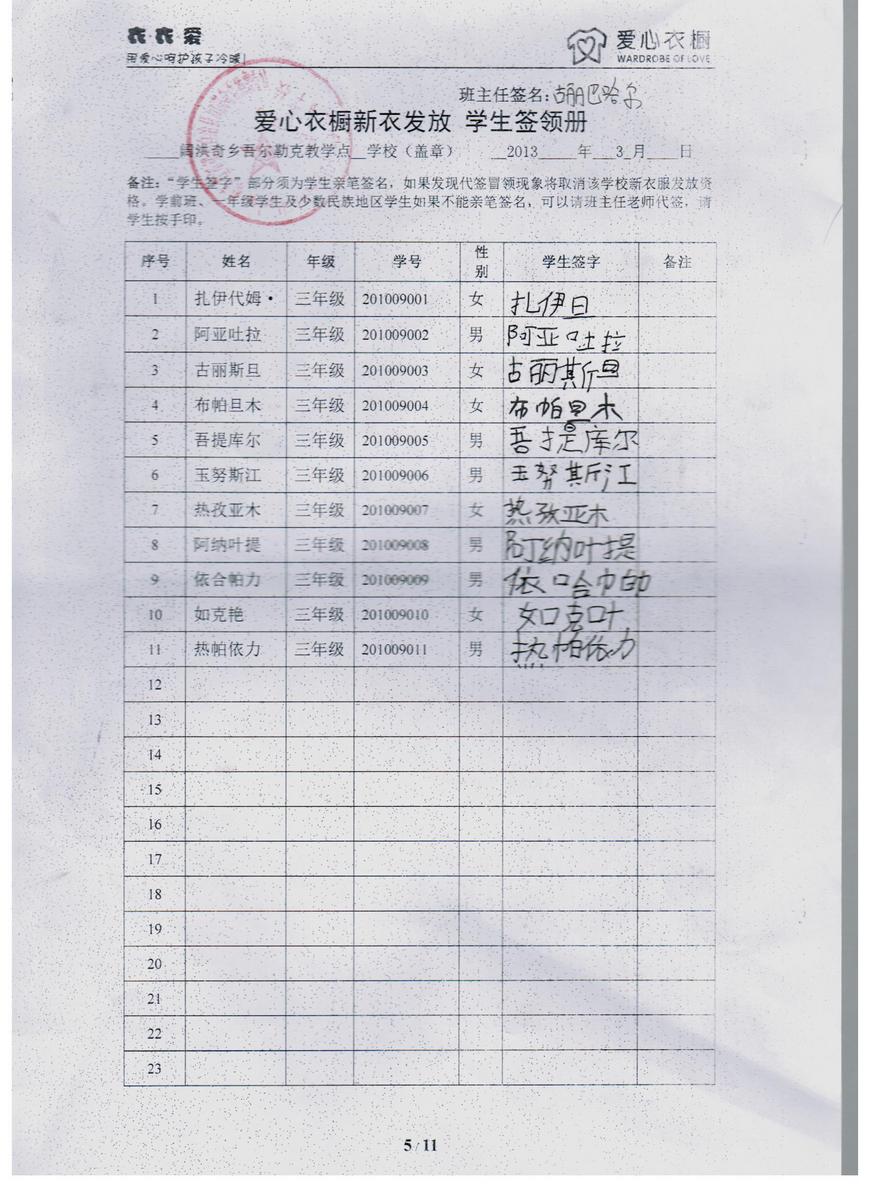 衣衣爱
用爱心呵护孩子冷暖!
爱心衣橱
WARDROBE OF LOVE
班主任签名:古丽巴哈尔
爱心衣橱新衣发放 学生签领册
阔洪奇乡吾尔勒克教学点 学校（盖章） 2013 年 3 月 日
备注：“学生签字”部分须为学生亲笔签名，如果发现代签冒领现象将取消该学校新衣服发放资
格。学前班、一年级学生及少数民族地区学生如果不能亲笔签名，可以请班主任老师代签，请
学生按手印。
序号 姓名 年级 学号 性别 学生签字 备注
1 扎伊代姆· 三年级 201009001 女 扎伊旦
2 阿亚吐拉 三年级 201009002 男 阿亚吐拉
3 古丽斯旦 三年级 201009003 女 古丽斯旦
4 布帕旦木 三年级 201009004 女 布帕旦木
5 吾提库尔 三年级 201009005 男 吾提库尔
6 玉努斯江 三年级 201009006 男 玉努斯江
7 热孜亚木 三年级 201009007 女 热孜亚木
8 阿纳叶提 三年级 201009008 男 阿纳叶提
9 依合帕力 三年级 201009009 男 依哈帕
10 如克艳 三年级 201009010 女 如克叶
11 热帕依力 三年级 201009011 男 热帕依力
12
13
14
15
16
17
18
19
20
21
22
23
5 / 11